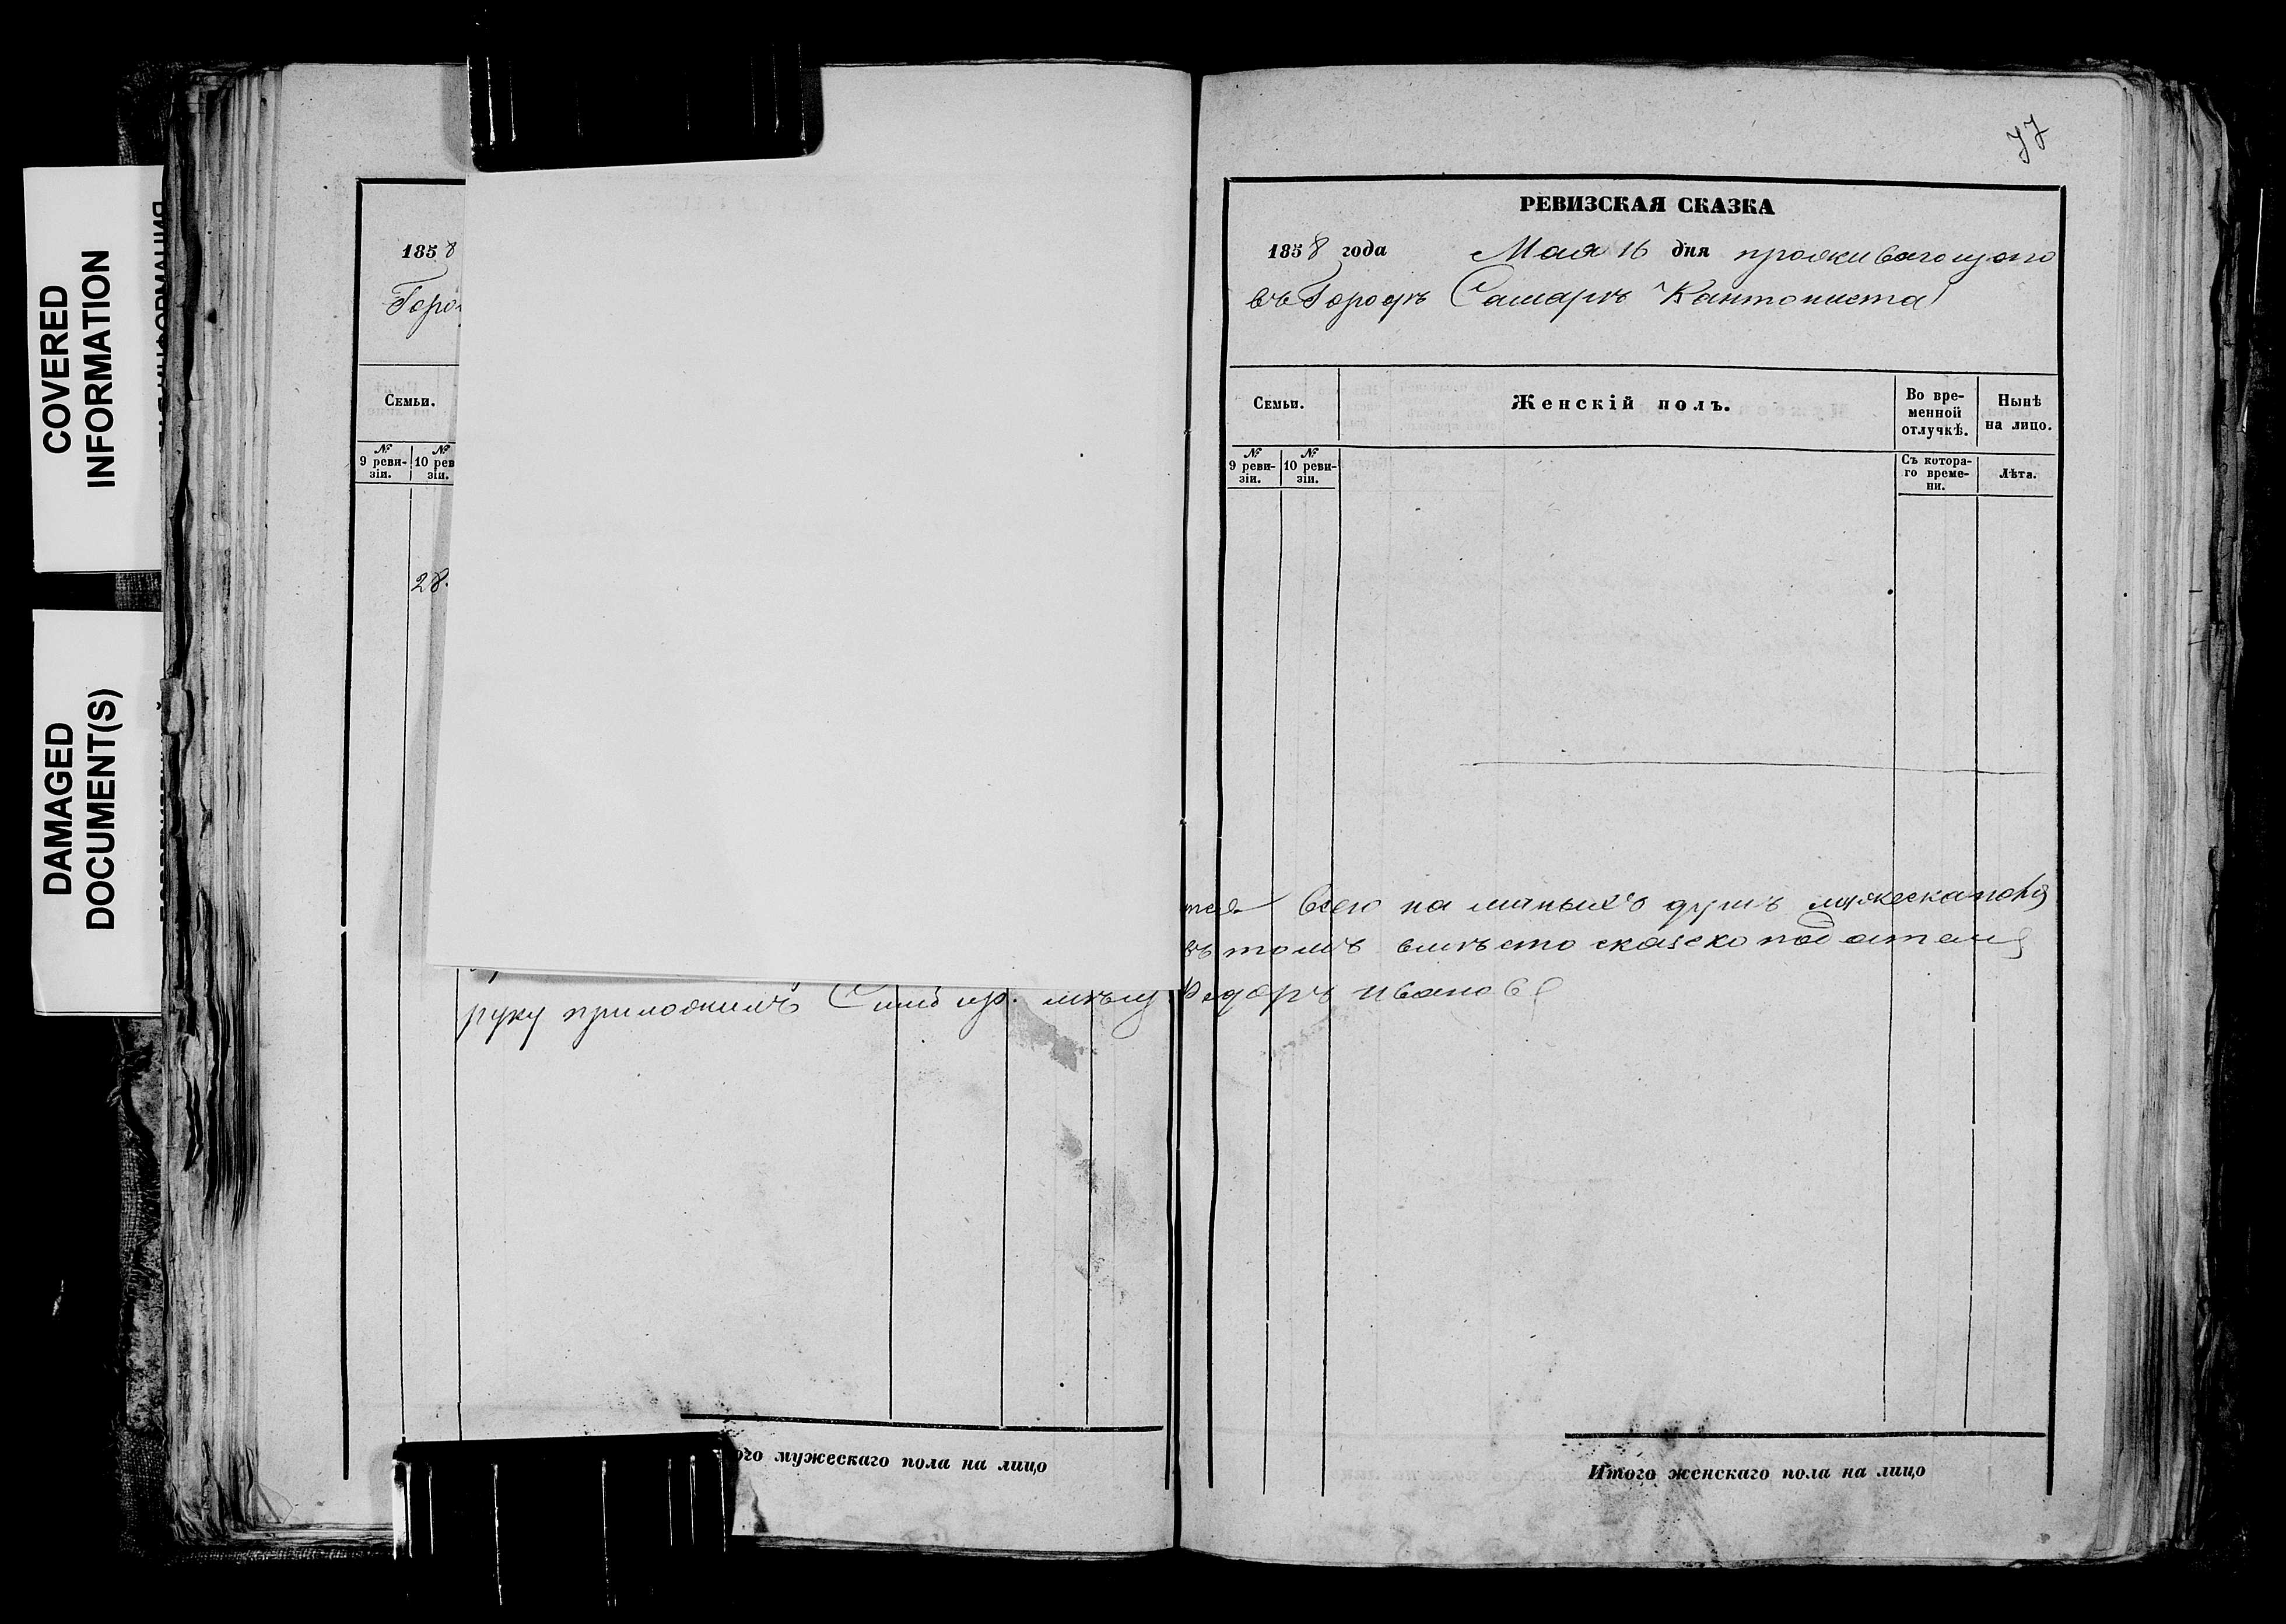 COVERED
INFORMATION
DAMAGED
DOCUMENT(S)
1858
Горо
Семьи.
№ 9 ревизіи.
№ 10 рев зіи.
28.
руку приложилъ Симбир. мѣщ Федоръ Ивановъ
ого мужескаго пола на лицо
77
РЕВИЗСКАЯ СКАЗКА
1858 года Мая 16 дня проживающаго
въ Городѣ Самарѣ Кантониста
Семьи.
Женскій полъ.
Во временной отлучкѣ.
Нынѣ на лицо.
№ 9 ревизіи.
№ 10 ревизіи.
Съ котораго времени.
Лѣта.
всего на душъ мужеска пола
въ томъ вмѣсто сказкоподателя
Итого женскаго пола на лицо